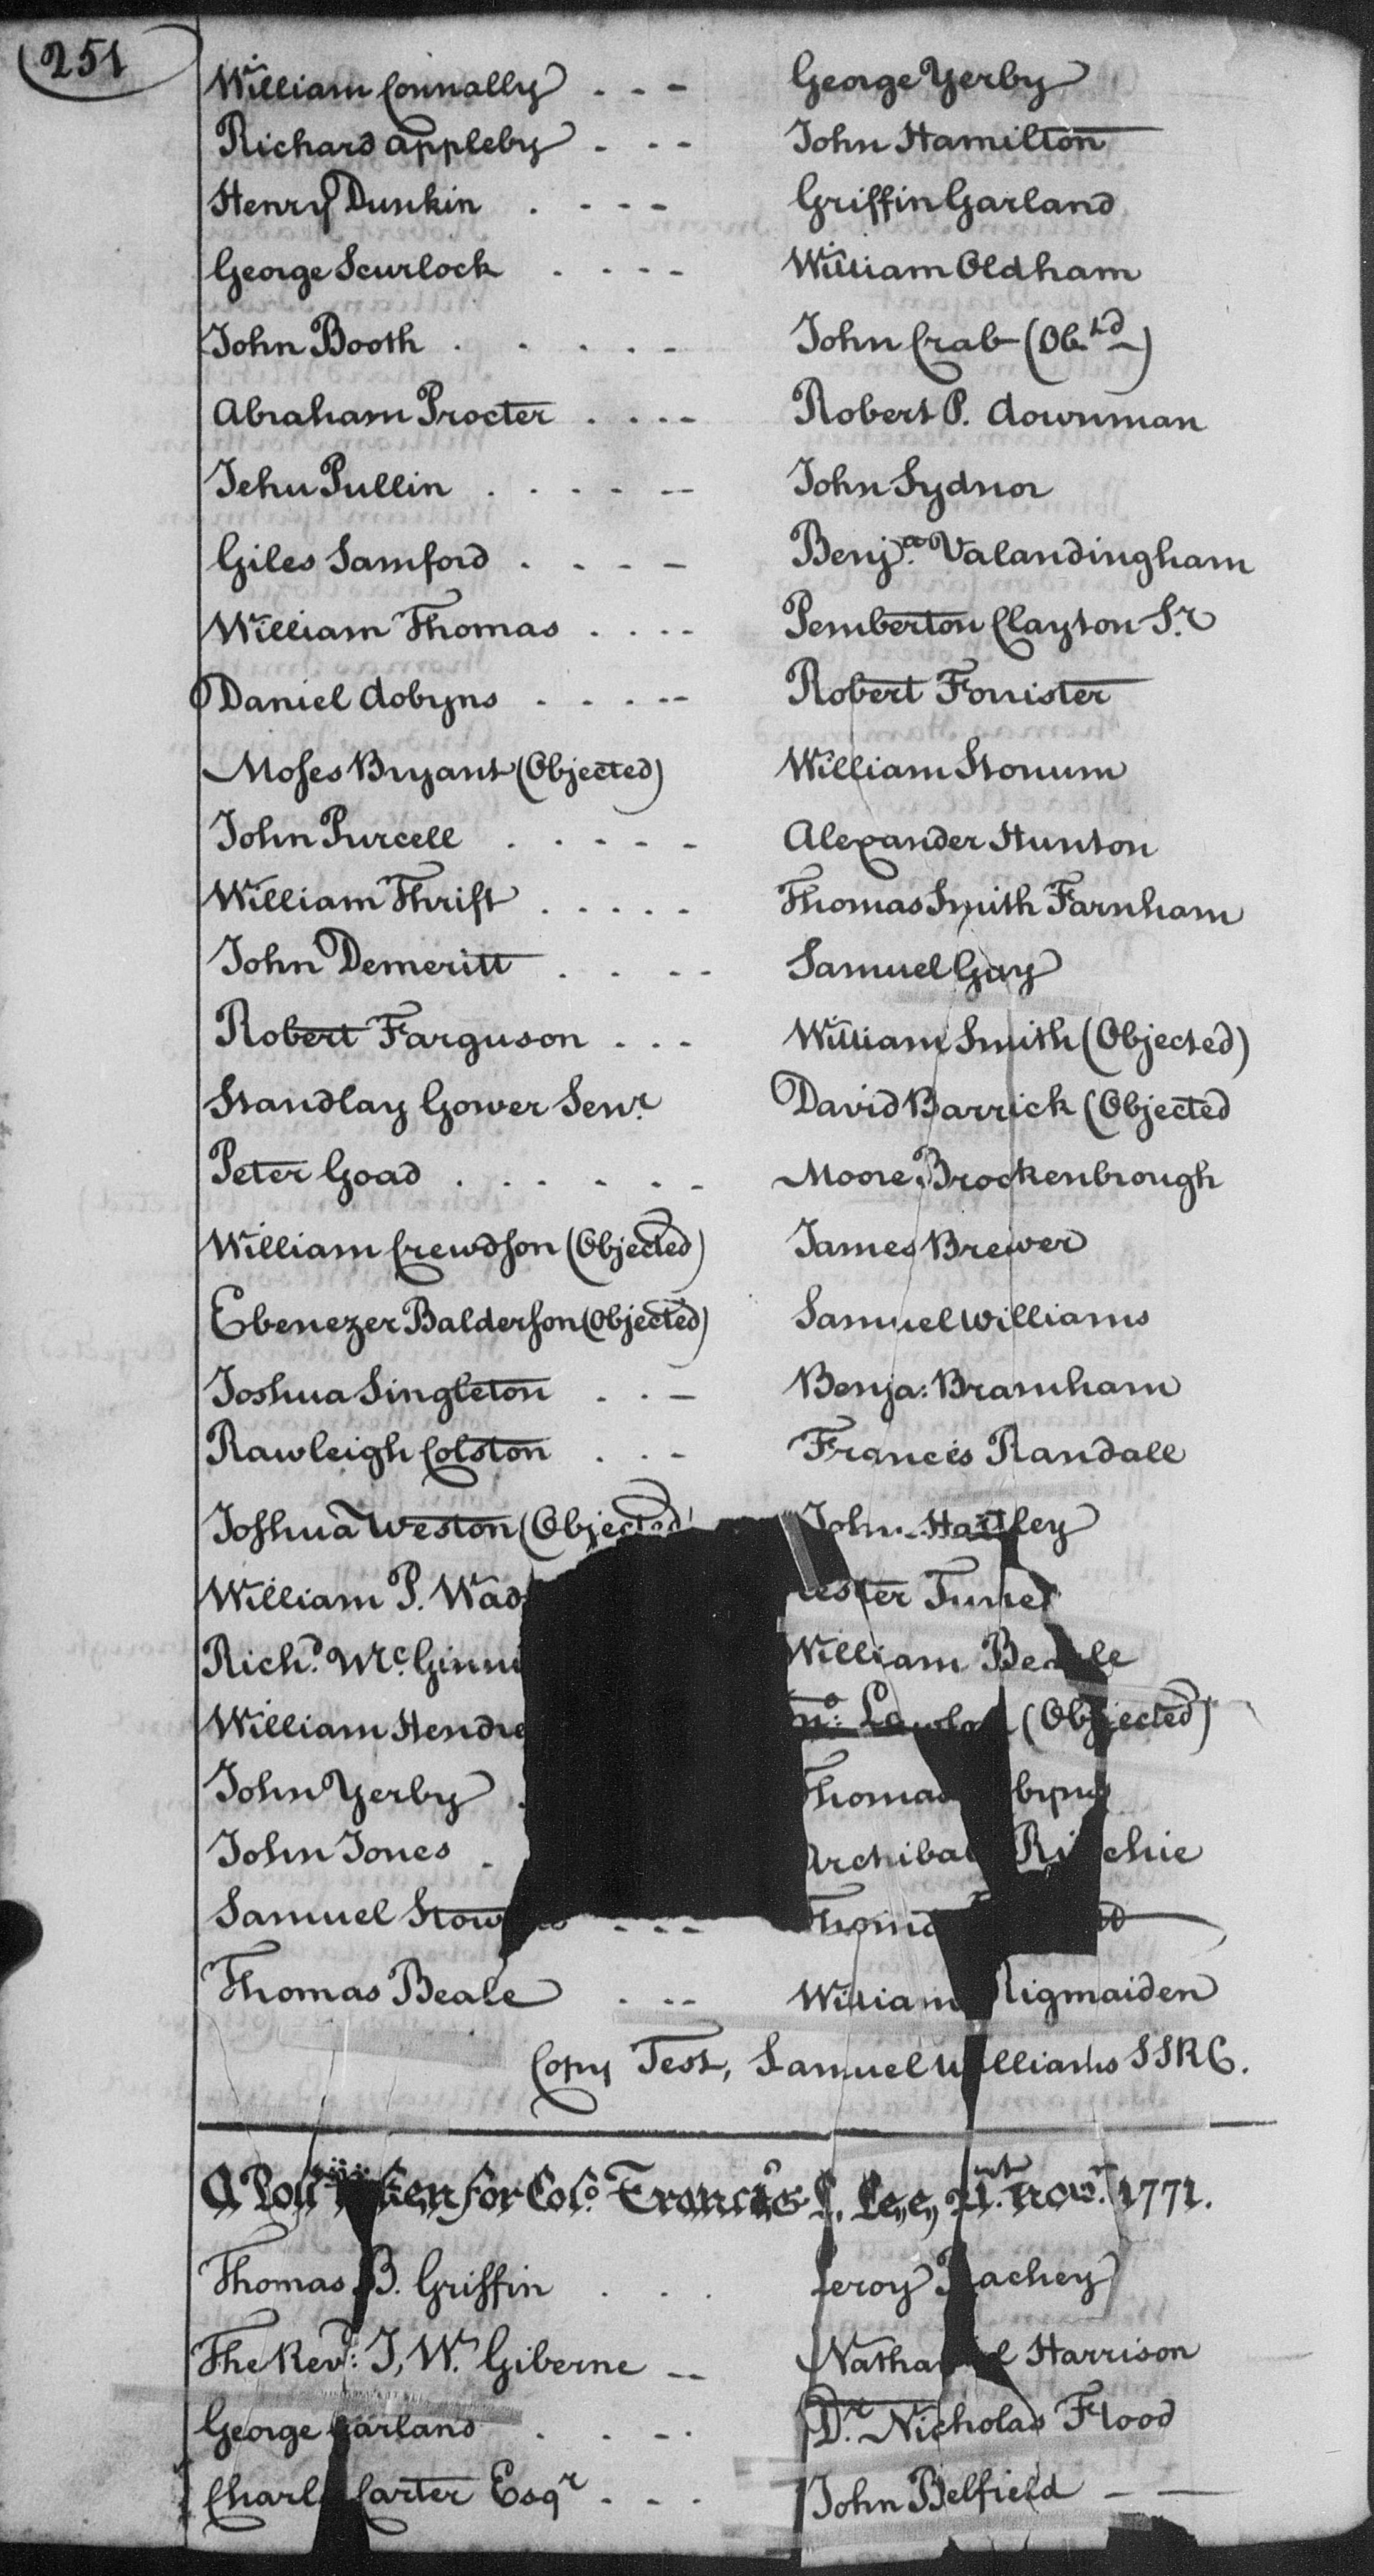 251
William Connally - - - George Yerby
Richard Appleby - - - John Hamilton
Henry Dunkin - - - - Griffin Garland
George Scurlock - - - - William Oldham
John Booth - - - - - John Crab (Obtd)
Abraham Procter - - - - Robert P. Downman
Jehu Pullin - - - - - John Sydnor
Giles Samford - - - - Benja. Valandingham
William Thomas - - - - Pemberton Clayton Sr.
Daniel Dobyns - - - - Robert Forrister
Moses Bryant (Objected) William Stonum
John Purcell - - - - - Alexander Hunton
William Thrift - - - - - Thomas Smith Farnham
John Demeritt - - - - Samuel Gay
Robert Farguson - - - William Smith (Objected)
Standlay Gower Senr. David Barrick (Objected
Peter Goad - - - - - - Moore Brockenbrough
William Crewdson (Objected) James Brewer
Ebenezer Balderson (Objected) Samuel Williams
Joshua Singleton - - - Benja: Bramham
Rawleigh Colston - - - Francis Randall
Joshua Weston (Objected) John Hartley
William P.
Richd. William Beale
William (Objected)
John Yerby Thomas
John Jones Archibald Ritchie
Samuel - - -
Thomas Beale - - - William Rigmaiden
Copy Test, Samuel Williams SSRC.
A Poll taken for Colo. Francis L. Lee, 21st. Novr. 1771.
Thomas B. Griffin - - - Leroy
The Revd: I, W. Giberne - - Nathaniel Harrison
George Garland - - - - Dr. Nicholas Flood
Charles Carter Esqr - - - John Belfield - -